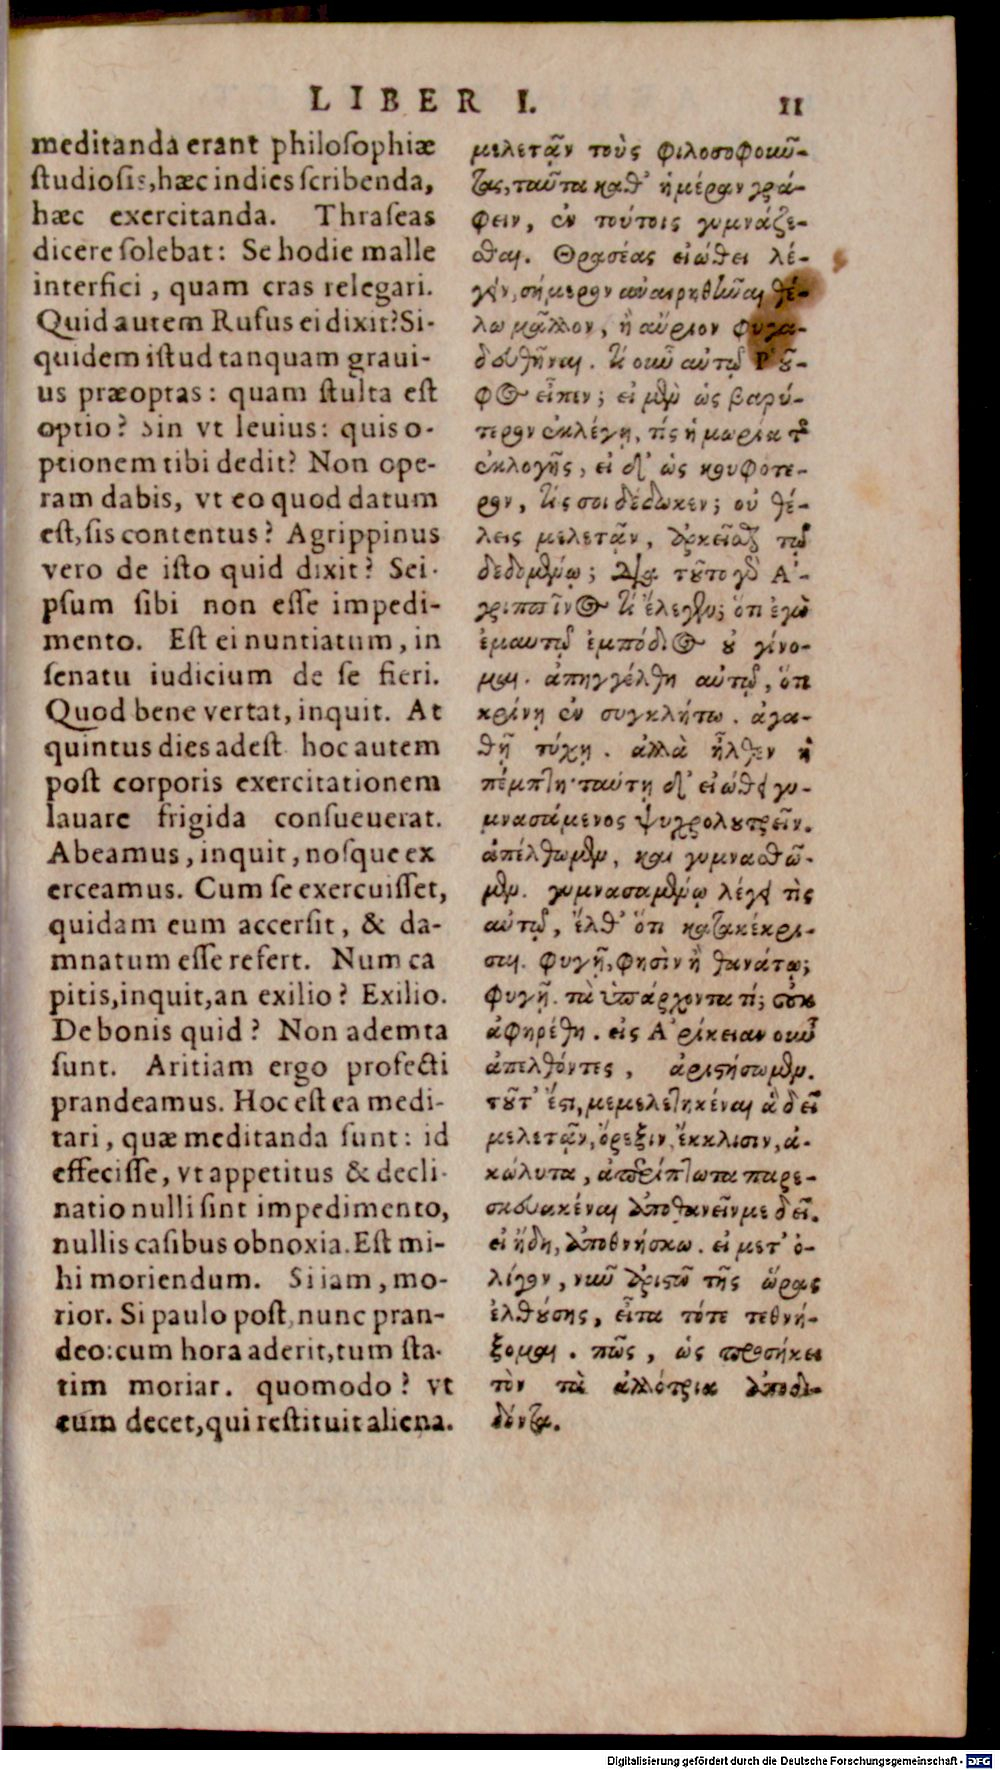 LIBER I. 11
meditanda erant philosophiæ
studiosis, hæc indies scribenda,
hæc exercitanda. Thraseas
dicere solebat: Se hodie malle
interfici, quam cras relegari.
Quid autem Rufus ei dixit? Si-
quidem istud tanquam graui-
us præoptas: quam stulta est
optio? Sin vt leuius: quis o-
ptionem tibi dedit? Non ope-
ram dabis, vt eo quod datum
est, sis contentus? Agrippinus
vero de isto quid dixit? Sei-
psum sibi non esse impedi-
mento. Est ei nuntiatum, in
senatu iudicium de se fieri.
Quod bene vertat, inquit. At
quintus dies adest hoc autem
post corporis exercitationem
lauare frigida consueuerat.
Abeamus, inquit, nosque ex
erceamus. Cum se exercuisset,
quidam eum accersit, & da-
mnatum esse refert. Num ca
pitis, inquit, an exilio? Exilio.
De bonis quid? Non ademta
sunt. Aritiam ergo profecti
prandeamus. Hoc est ea medi-
tari, quæ meditanda sunt: id
effecisse, vt appetitus & decli-
natio nulli sint impedimento,
nullis casibus obnoxia. Est mi-
hi moriendum. Si iam, mo-
rior. Si paulo post, nunc pran-
deo: cum hora aderit, tum sta-
tim moriar. quomodo? vt
eum decet, qui restituit aliena.
μελετᾷν τοὺς φιλοσοφοιοῦ-
τας, ταῦτα καθ' ἡμέραν γρά-
φειν, ἐν τούτοις γυμνάζε-
σθαι. Θρασέας εἰώθει λέ-
γειν, σήμερον ἀναιρεθῆναι θέ-
λω μᾶλλον, ἢ αὔριον φυγα-
δευθῆναι. τί οὖν αὐτῷ Ῥοῦ-
φος εἶπεν; εἰ μὲν ὡς βαρύ-
τερον ἐκλέγῃ, τίς ἡ μωρία τῆς
ἐκλογῆς, εἰ δ' ὡς κουφοτε-
ρον, τίς σοι δέδωκεν; οὐ θέ-
λεις μελετᾷν, ἀρκεῖσθαι τῷ
δεδομένῳ; Διὰ τοῦτο γὰρ Ἀ-
γριππῖνος τί ἔλεγεν; ὅτι ἐγὼ
ἐμαυτῷ ἐμπόδιος οὐ γίνο-
μαι. ἀπηγγέλθη αὐτῷ, ὅτι
κρίνῃ ἐν συγκλήτω. ἀγα-
θῇ τύχῃ. ἀλλὰ ἦλθεν ἡ
πέμπτη· ταύτῃ δ' εἰώθει γυ-
μνασάμενος ψυχρολουτρεῖν.
ἀπέλθωμεν, και γυμνασθῶ-
μεν. γυμνασαμένῳ λέγει τὶς
αὐτῷ, ἔλθ' ὅτι κατακέκρι-
σαι. φυγῇ, φησὶν ἢ θανάτῳ;
φυγῇ. τὰ ὑπάρχοντα τί; οὐκ
ἀφῃρέθη. εἰς Ἀρίκειαν οὖν
ἀπελθόντες, ἀριστήσωμεν.
τοῦτ' ἔστι, μεμελετηκέναι ἃ δεῖ
μελετᾷν, ὄρεξιν, ἔκκλισιν, ἀ-
κώλυτα, ἀπερίπτωτα παρε-
σκευακέναι ἀποθανεῖν με δεῖ.
εἰ ἤδη, ἀποθνήσκω. εἰ μετ' ὀ-
λίγον, νῦν ἀριστῶ τῆς ὥρας
ἐλθούσης, εἶτα τότε τεθνή-
ξομαι. πῶς, ὡς προσήκει
τὸν τὰ ἀλλότρια ἀποδι-
δόντα.
Digitalisierung gefördert durch die Deutsche Forschungsgemeinschaft - DFG